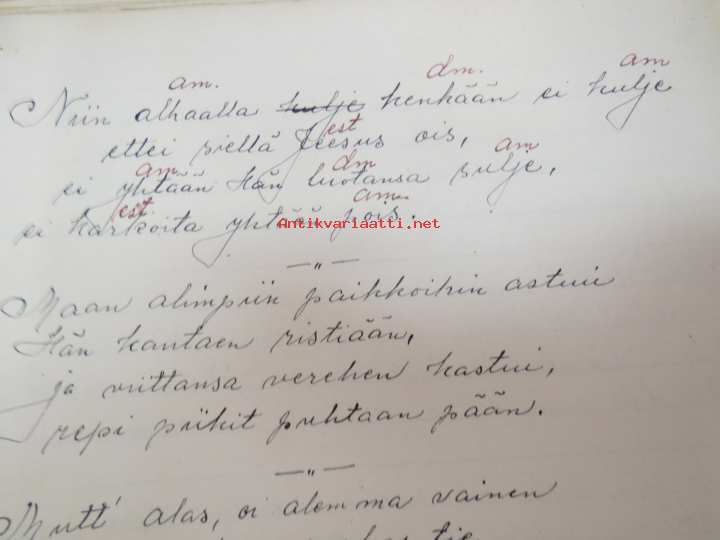 am. dm. am
Niin alhaalla kulje kenkään ei kulje
est
ettei siellä Jeesus ois,
am dm am
ei yhtään Hän luotansa sulje,
est am
ei karkoita yhtää pois.
Antikvariaatti.net
—„—
Maan alimpiin paikkoihin astui
Hän kantaen ristiään,
ja viittansa verehen kastui,
repi piikit puhtaan pään.
—„—
Mutt' alas, oi alemma vainen
tie